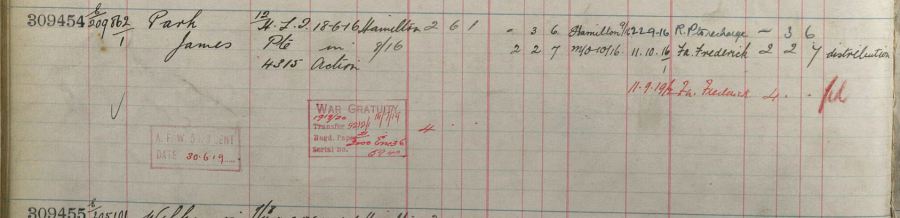 309454 E/209862/1 Park 12 H.L.I. 18-6-16 Hamilton 2 6 1 - 3 6 Hamilton 22-9-16 R. P to recharge - 3 6
James Pte in 8/16 2 2 7 M/O-10/16 11.10.16 Fa. Frederick 2 2 7 distribution
4315 Action
11.9.19 Fa. Frederick 4 . .
WAR GRATUITY
1919/20
Transfer 16/7/19
Regd. Paper
Serial No.
4 . .
DATE 30.6.19
309455